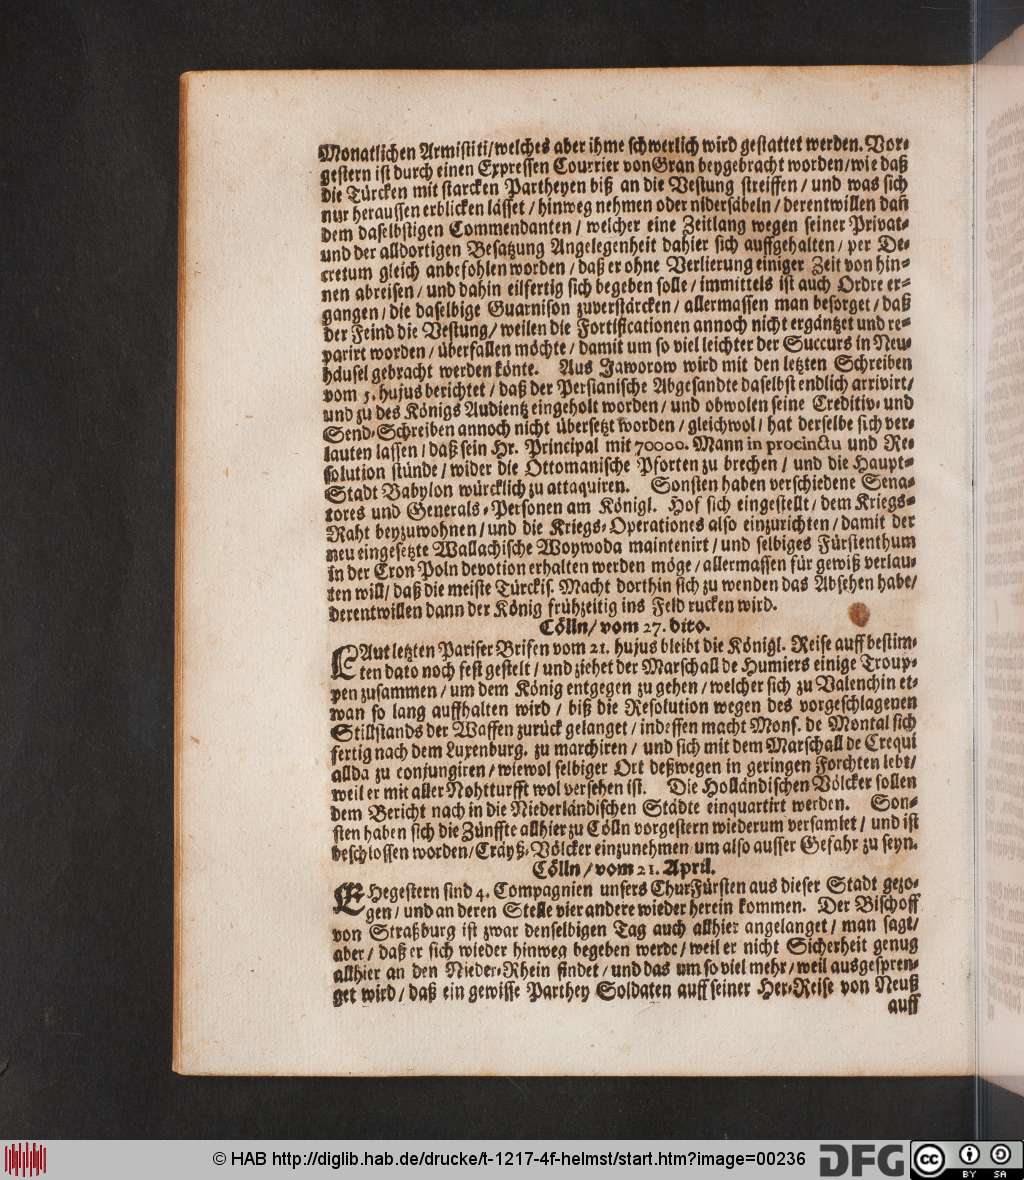 Monatlichen Armistiti/welches aber ihme schwerlich wird gestattet werden. Vor-
gestern ist durch einen Expressen Courrier von Gran beygebracht worden/wie daß
die Türcken mit starcken Partheyen biß an die Vestung streiffen/ und was sich
nur heraussen erblicken lässet/ hinweg nehmen oder nidersäbeln/ derentwillen dañ
dem daselbstigen Commendanten/ welcher eine Zeitlang wegen seiner Privat-
und der alldortigen Besatzung Angelegenheit dahier sich auffgehalten/ per De-
cretum gleich anbefohlen worden/ daß er ohne Verlierung einiger Zeit von hin-
nen abreisen/ und dahin eilfertig sich begeben solle/ immittels ist auch Ordre er-
gangen/ die daselbige Guarnison zuverstärcken/ allermassen man besorget/ daß
der Feind die Vestung/ weilen die Fortificationen annoch nicht ergäntzet und re-
parirt worden/ überfallen möchte/ damit um so viel leichter der Succurs in Neu-
häusel gebracht werden könte. Aus Jaworow wird mit den letzten Schreiben
vom 5. hujus berichtet/ daß der Persianische Abgesandte daselbst endlich arrivirt/
und zu des Königs Audientz eingeholt worden/ und obwolen seine Creditiv- und
Send-Schreiben annoch nicht übersetzt worden/ gleichwol/ hat derselbe sich ver-
lauten lassen/ daß sein Hr. Principal mit 70000. Mann in procinctu und Re-
solution stünde/ wider die Ottomanische Pforten zu brechen/ und die Haupt-
Stadt Babylon würcklich zu attaquiren. Sonsten haben verschiedene Sena-
tores und Generals-Personen am Königl. Hof sich eingestellt/ dem Kriegs-
Raht beyzuwohnen/ und die Kriegs-Operationes also einzurichten/ damit der
neu eingesetzte Wallachische Woywoda maintenirt/ und selbiges Fürstenthum
in der Cron Poln devotion erhalten werden möge/ allermassen für gewiß verlau-
ten will/ daß die meiste Türckis. Macht dorthin sich zu wenden das Absehen habe/
derentwillen dann der König frühzeitig ins Feld rucken wird.
Cölln/ vom 27. dito.
LAut letzten Pariser Brifen vom 21. hujus bleibt die Königl. Reise auff bestim-
ten dato noch fest gestelt/ und ziehet der Marschall de Humiers einige Troup-
pen zusammen/ um dem König entgegen zu gehen/ welcher sich zu Valenchin et-
wan so lang auffhalten wird/ biß die Resolution wegen des vorgeschlagenen
Stillstands der Waffen zurück gelanget/ indessen macht Mons. de Montal sich
fertig nach dem Luxenburg. zu marchiren/ und sich mit dem Marschall de Crequi
allda zu conjungiren/ wiewol selbiger Ort deßwegen in geringen Forchten lebt/
weil er mit aller Nohtturfft wol versehen ist. Die Holländischen Völcker sollen
dem Bericht nach in die Niederländischen Städte einquartirt werden. Son-
sten haben sich die Zünffte allhier zu Cölln vorgestern wiederum versamlet/ und ist
beschlossen worden/ Cräyß-Völcker einzunehmen um also ausser Gefahr zu seyn.
Cölln/ vom 21. April.
EHegestern sind 4. Compagnien unsers ChurFürsten aus dieser Stadt gezo-
gen/ und an deren Stelle vier andere wieder herein kommen. Der Bischoff
von Straßburg ist zwar denselbigen Tag auch allhier angelanget/ man sagt/
aber/ daß er sich wieder hinweg begeben werde/ weil er nicht Sicherheit genug
allhier an den Nieder-Rhein findet/ und das um so viel mehr/ weil ausgespren-
get wird/ daß ein gewisse Parthey Soldaten auff seiner Her-Reise von Neuß
auff
© HAB http://diglib.hab.de/drucke/t-1217-4f-helmst/start.htm?image=00236
DFG
cc
BY SA